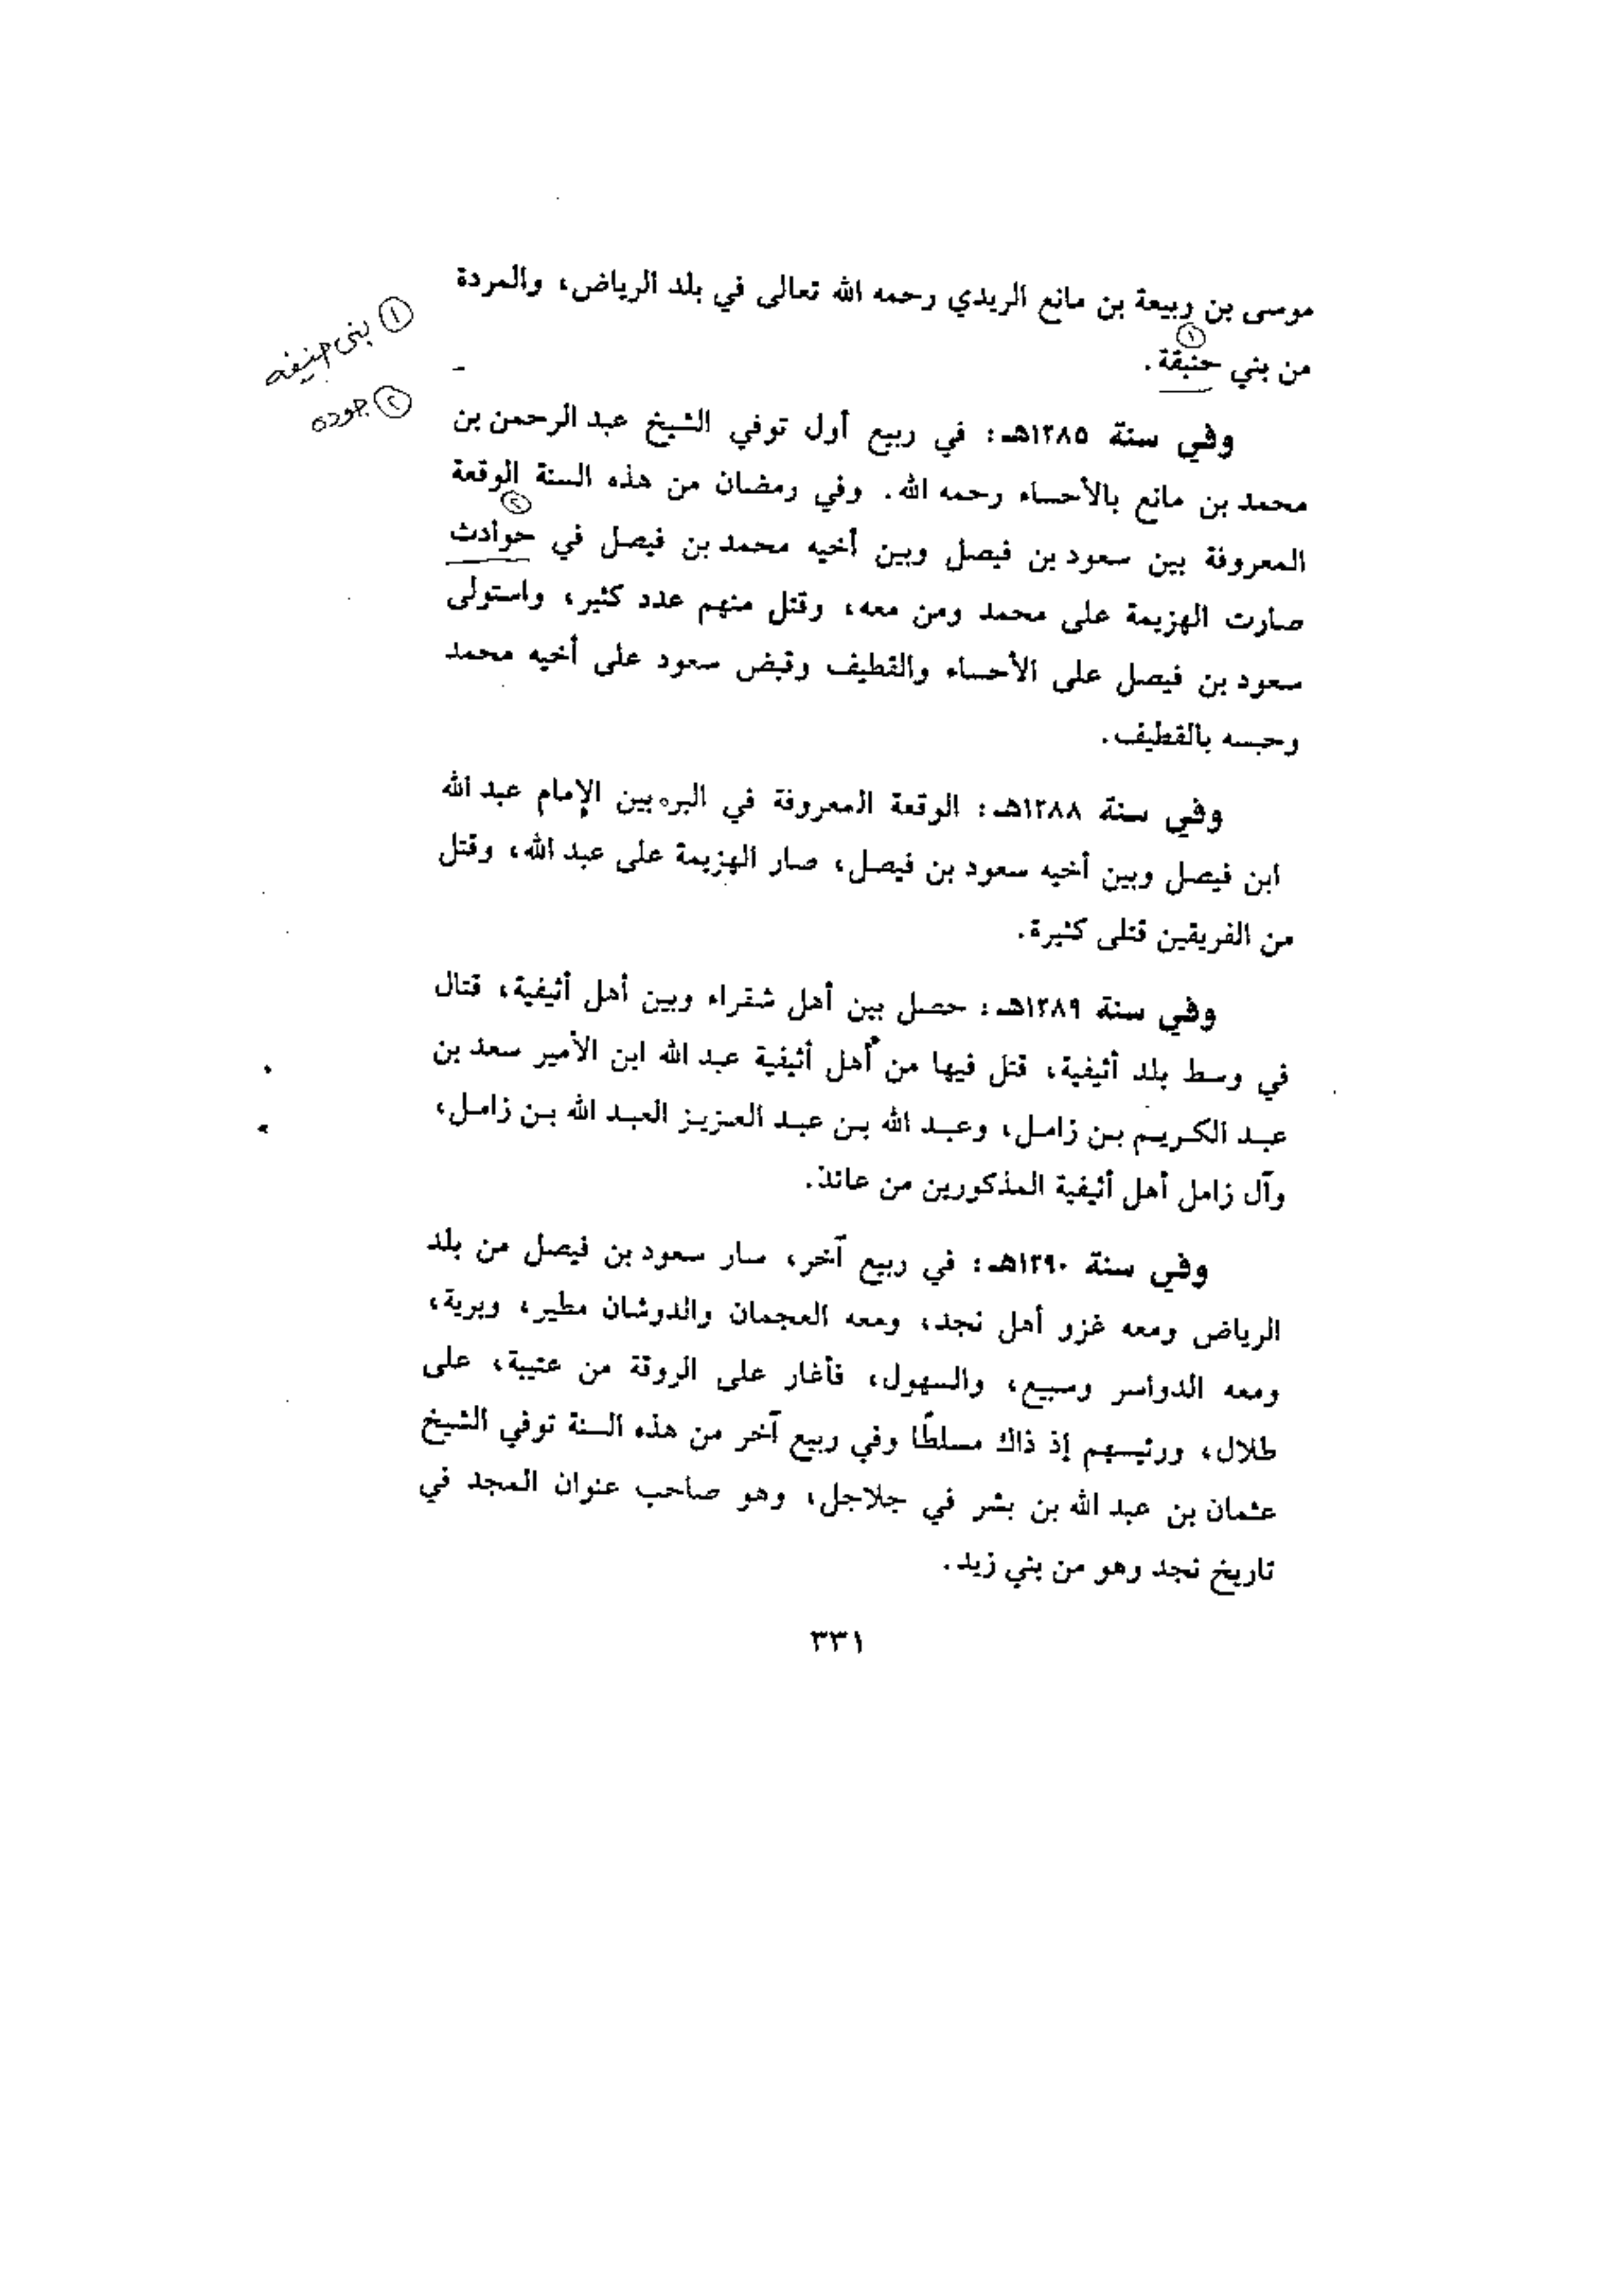 موسى بن ربيعة بن مانع الريدي رحمه الله تعالى في بلد الرياض، والمردة
من بني حنبقة.
① بني حنيفه
② جوده
وفي سنة ١٢٨٥هـ: في ربيع أول توفي الشيخ عبد الرحمن بن
محمد بن مانع بالأحساء رحمه الله. وفي رمضان من هذه السنة الوقعة
المعروفة بين سعود بن فيصل وبين أخيه محمد بن فيصل في حوادث
صارت الهزيمة على محمد ومن معه، وقتل منهم عدد كثير، واستولى
سعود بن فيصل على الأحساء والقطيف وقبض سعود على أخيه محمد
وحبسه بالقطيف.
وفي سنة ١٢٨٨هـ: الوقعة المعروفة في البره بين الإمام عبد الله
ابن فيصل وبين أخيه سعود بن فيصل، صار الهزيمة على عبد الله، وقتل
من الفريقين قتلى كثيرة.
وفي سنة ١٢٨٩هـ: حصل بين أهل شقراء وبين أهل أثيفية، قتال
في وسط بلد أثيفية، قتل فيها من أهل أثيفية عبد الله ابن الأمير سعد بن
عبد الكريم بن زامل، وعبد الله بن عبد العزيز العبد الله بن زامل،
وآل زامل أهل أثيفية المذكورين من عائذ.
وفي سنة ١٢٩٠هـ: في ربيع آخر، سار سعود بن فيصل من بلد
الرياض ومعه غزو أهل نجد، ومعه العجمان والدوشان مطير، وبرية،
ومعه الدواسر وسبيع، والسهول، فأغار على الروقة من عتيبة، على
طلال، ورئيسهم إذ ذاك مسلطًا وفي ربيع آخر من هذه السنة توفي الشيخ
عثمان بن عبد الله بن بشر في جلاجل، وهو صاحب عنوان المجد في
تاريخ نجد وهو من بني زيد.
٣٣١